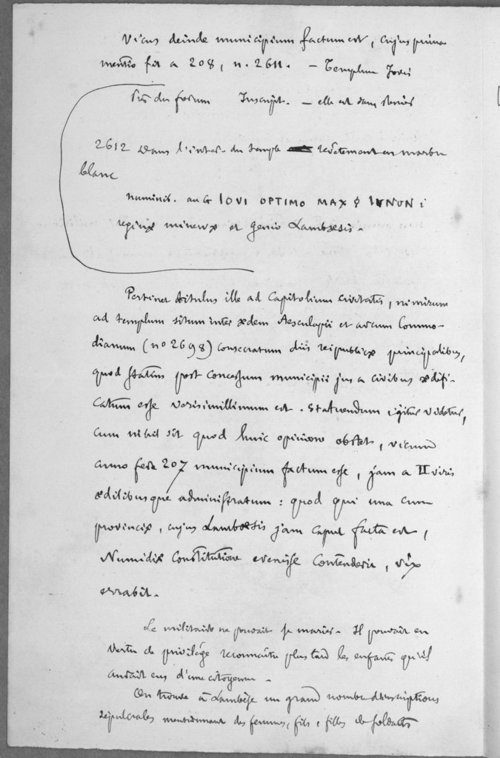 Vicus deinde municipium factum est, cujus prima
mentio fit a 208, n. 2611. — Templum Jovis
Près du forum Inscript. — elle est dans
2612 Dans l'inter. du temple revêtement en marbre
blanc
numinib. aug IOVI OPTIMO MAX IUNON i
reginæ minervæ et genio Lambæsis.
Pertinet titulus ille ad Capitolium civitatis, nimirum
ad templum situm inter ædem Aesculapii et arcum Commo-
dianum (no 2698) consecratum diis reipublicæ principalibus,
quod statim post concessum municipii jus a civibus ædifi-
catum esse verisimillimum est. Statuendum igitur videtur,
cum nihil sit quod huic opinioni obstet, vicum
anno fere 207 municipium factum esse, jam a II viris
ædilibusque administratum : quod qui una cum
provinciæ, cujus Lambæsis jam caput facta est,
Numidiæ Constitutione evenisse contenderit, vix
errabit.
Le militaire ne pouvait se marier. Il pouvait en
vertu de privilége reconnaître plus tard les enfants qu'il
aurait eus d'une citoyenne.
On trouve à Lambèse un grand nombre d'inscriptions
sépulcrales mentionnant des femmes, fils, filles de soldats